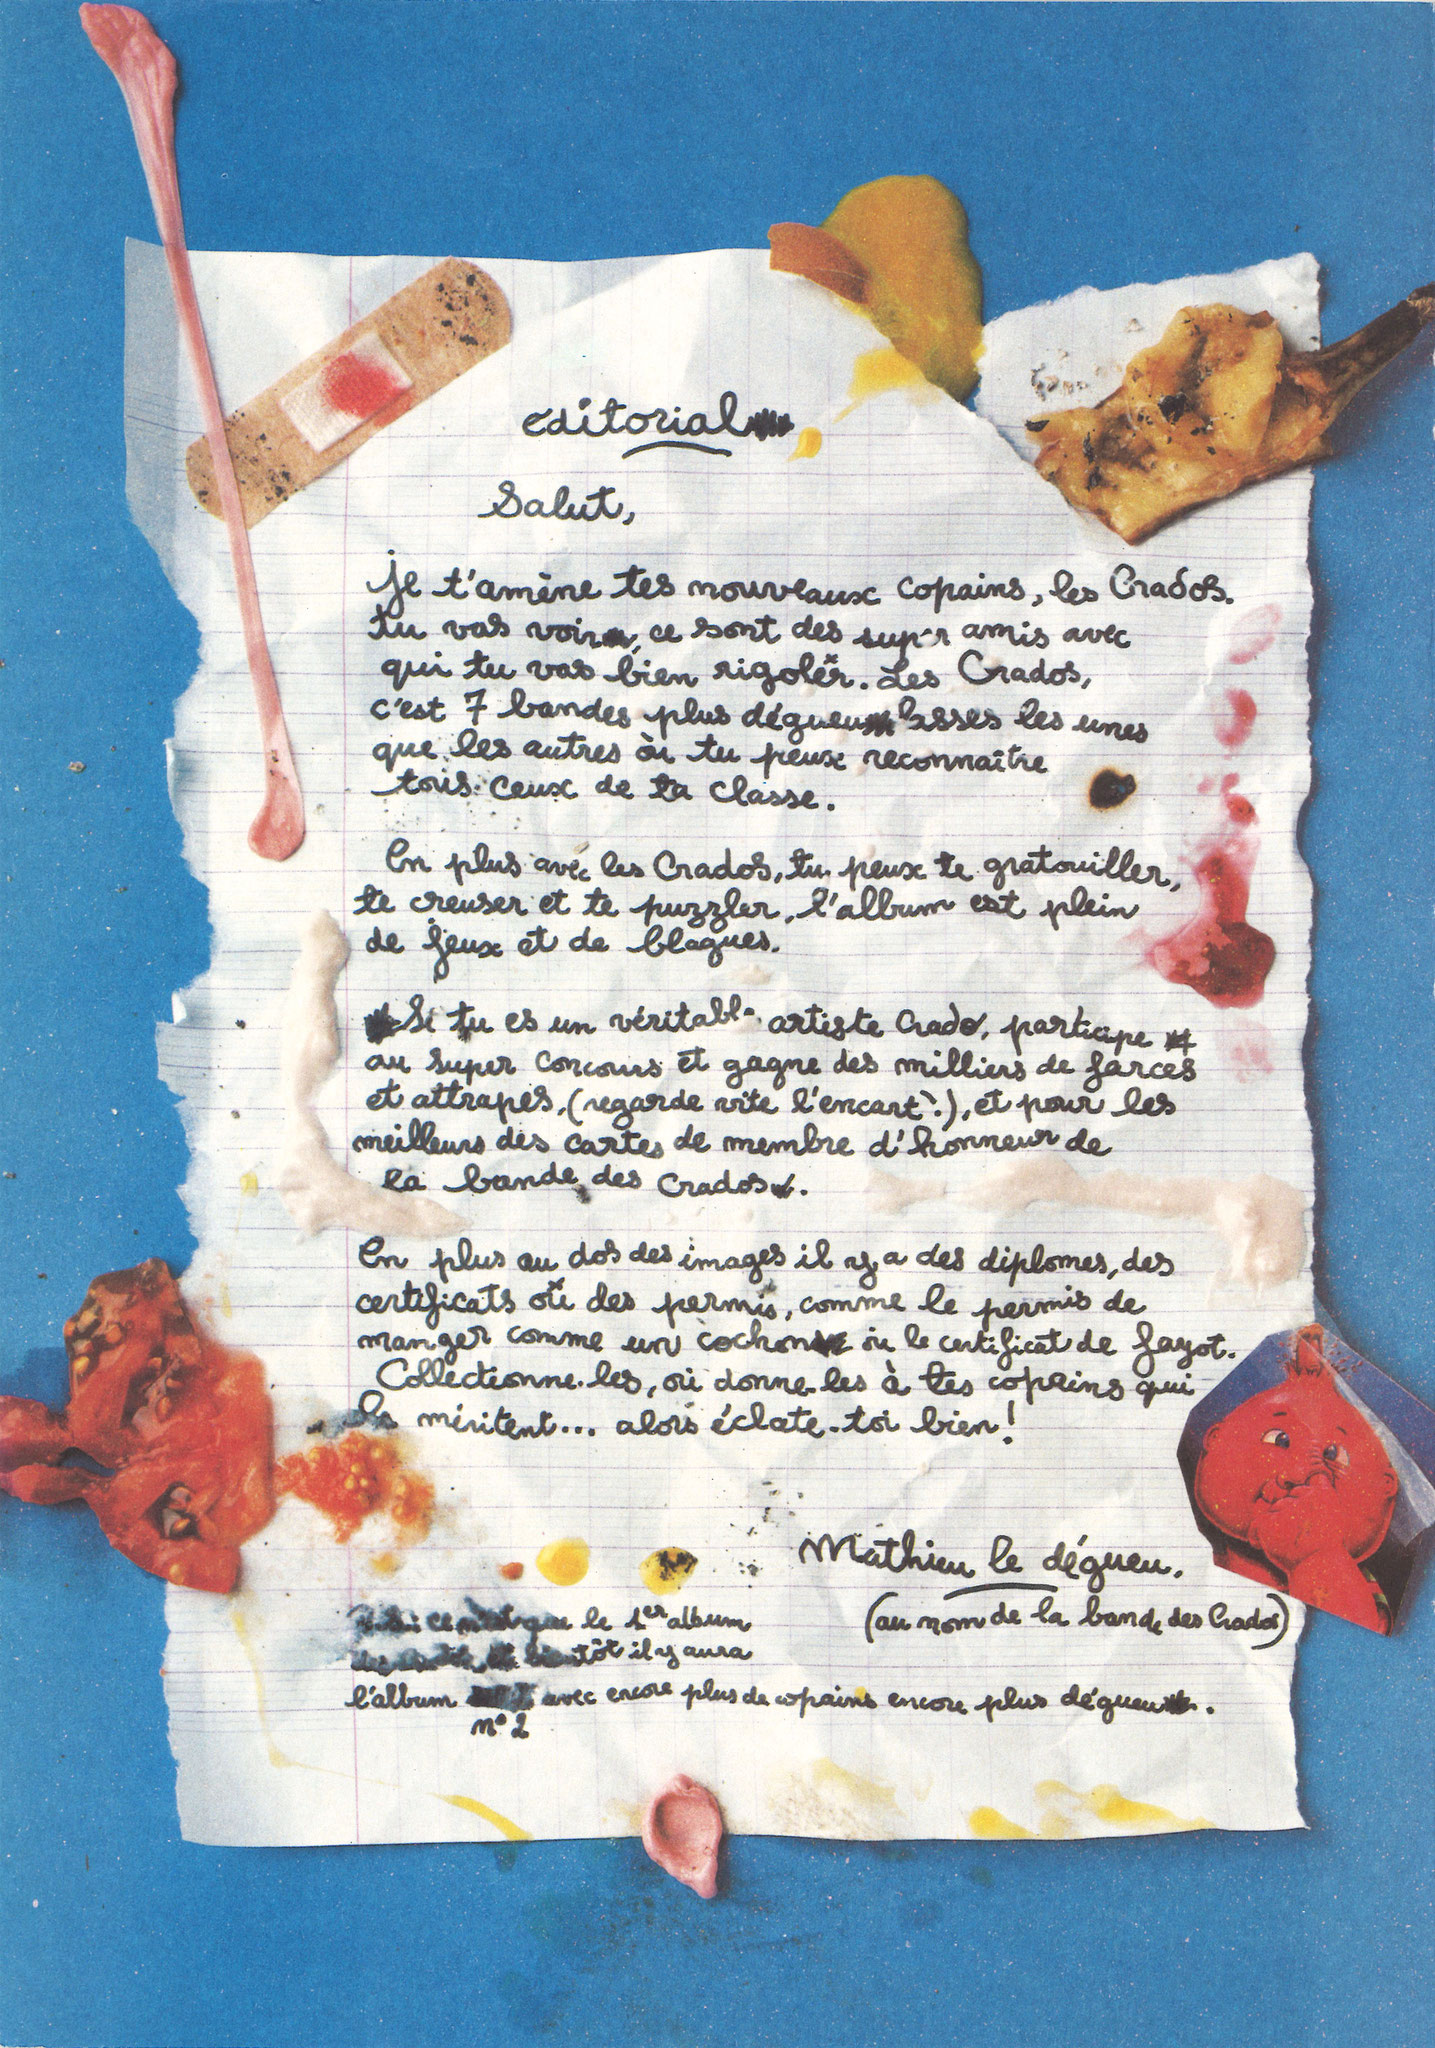 editorial
Salut,
je t'amène tes nouveaux copains, les Crados.
tu vas voir, ce sont des super amis avec
qui tu vas bien rigoler. Les Crados,
c'est 7 bandes plus dégueulasses les unes
que les autres où tu peux reconnaître
tous ceux de ta classe.
En plus avec les Crados, tu peux te gratouiller,
te creuser et te puzzler, l'album est plein
de jeux et de blagues.
Si tu es un véritable artiste Crado, participe
au super concours et gagne des milliers de farces
et attrapes, (regarde vite l'encart!), et pour les
meilleurs des cartes de membre d'honneur de
la bande des Crados.
En plus au dos des images il y a des diplomes, des
certificats ou des permis, comme le permis de
manger comme un cochon ou le certificat de fayot.
Collectionne-les, ou donne-les à tes copains qui
les méritent... alors éclate-toi bien!
Mathieu le dégueu.
(au nom de la bande des Crados)
ce n'est que le 1er album
bientôt il y aura
l'album n° 2 avec encore plus de copains encore plus dégueu.